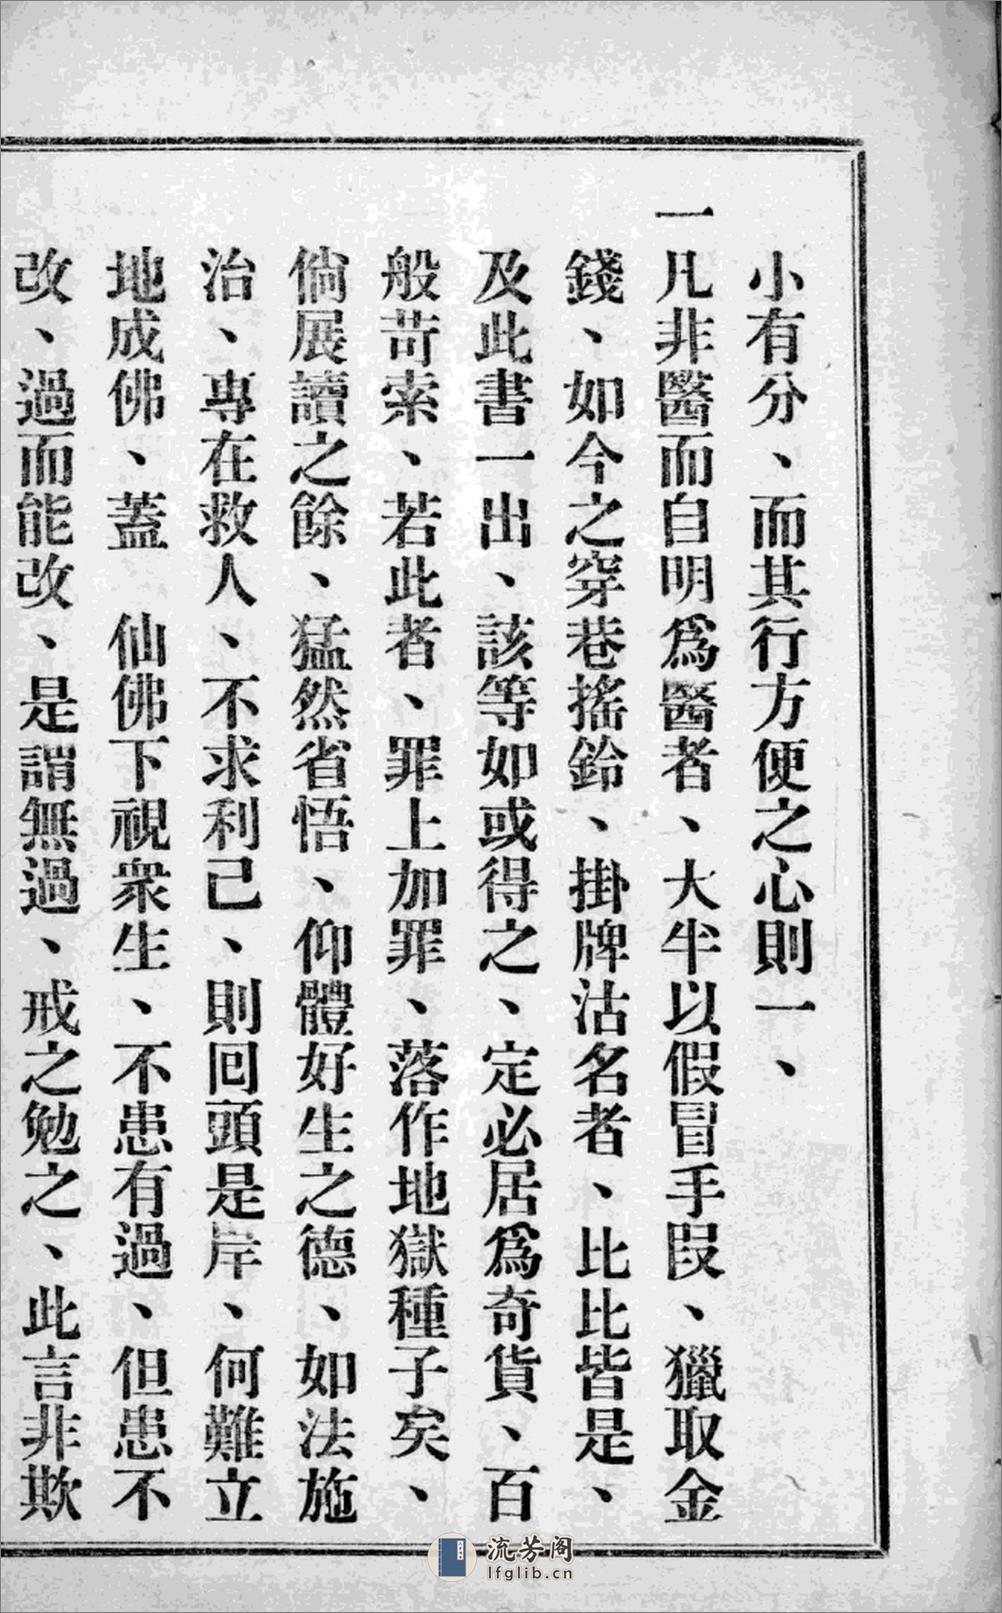 小有分、而其行方便之心則一、
一凡非醫而自明爲醫者、大半以假冒手段、獵取金
錢、如今之穿巷搖鈴、掛牌沽名者、比比皆是、
及此書一出、該等如或得之、定必居爲奇貨、百
般苛索、若此者、罪上加罪、落作地獄種子矣、
倘展讀之餘、猛然省悟、仰體好生之德、如法施
治、專在救人、不求利己、則回頭是岸、何難立
地成佛、蓋　仙佛下視衆生、不患有過、但患不
改、過而能改、是謂無過、戒之勉之、此言非欺
流芳阁
lfglib.cn